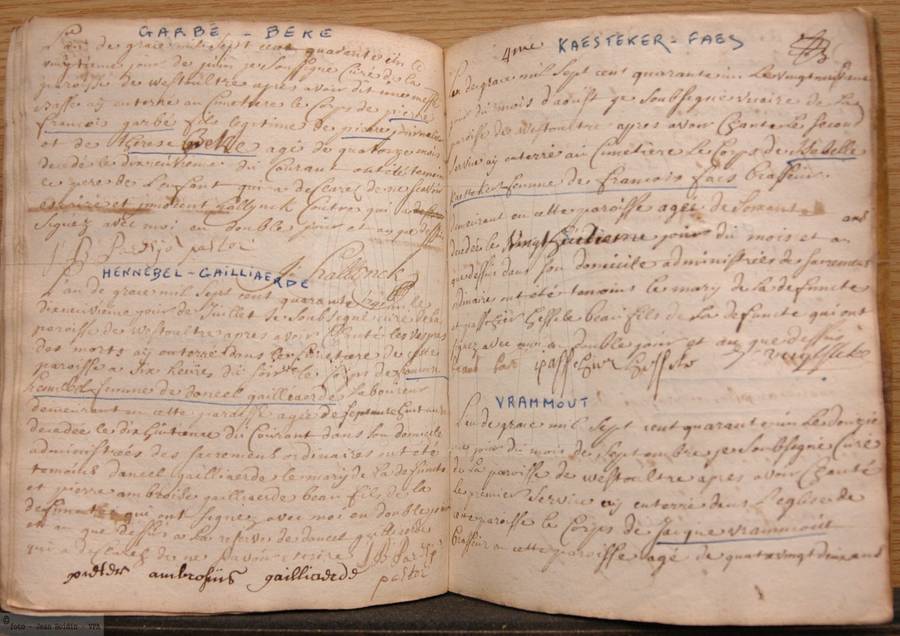 GARBÉ - BEKE
L'an de grace mil sept cent quarante un le
jour de juin je soussigné Curé de la
paroisse de westoultre apres avoir dit une messe
basse aÿ enterré au Cimetiere le Corps de pierre
francois garbé fils legitime de pierre
et de therese Beke agée de quatorze mois
decedé le dixneuvieme du Courant ont été temoin
le pere de L'enfant qui a declarez de ne scavoir
escrire et Callynck Cûtre qui a
signez avec moi en double jour et an que dessus
pastor
J: Callynck
HENNEBEL - GAILLIAERDE
L'an de grace mil sept cent quarante le
dixneuvieme jour de Juillet je soubsigné curé de la
paroisse de Westoultre apres avoir Chanté les vespres
des morts aÿ enterré dans le Cimetiere de cette
paroisse a six heures du soir le Corps de
hennebel femme de daneel gailliaerde laboureur
demeurant en cette paroisse agée de
decedée le dixhuitieme du Courant dans son domicile
administrées des sacremens ordinaires ont été
temoins daneel gailliaerde le mary de la defuncte
et pierre ambroise gailliaerde beau fils de la
defuncte qui ont signez avec moi en double jour
et an que dessus a la reserve de daneel gailliaerde
qui a declarez de ne scavoir escrire
pastor
pieter ambrosius gailliaerde
4me KAESTEKER - FAES
L'an de grace mil sept cent quarante un Le vingtneufieme
jour du mois d'aoust je soubsigné vicaire de La
paroisse de westoultre apres avoir Chanté Le second
service aÿ enterré au Cimetiere Le Corps de
Kaesteker femme de francois faes brasseur
demeurant en cette paroisse agée de soixante ans
decedée le vingthuitieme jour du mois et an
que dessus dans son domicile administrées des sacremens
ordinaires ont été temoins le mary de la defuncte
et beau fils de La defuncte qui ont
signez avec moi a double jour et an que dessus
VRAMMOUT
L'an de grace mil sept cent quarante un Le douzie
me jour du mois de septembre je soubsigné Curé
de la paroisse de westoultre apres avoir Chanté
Le premier service aÿ enterré dans L'eglise de
cette paroisse le Corps de Jacque vrammout
brasseur en cette paroisse agé de quatrevingt deux ans
© foto - Jean Boidin - VVF